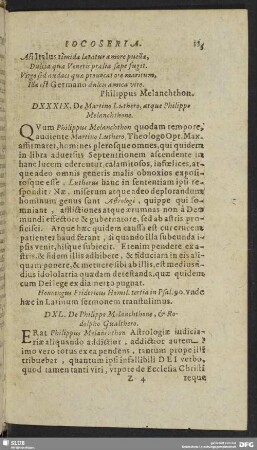 IOCOSERIA.
Ast Italus timida latatur amore puella,
Dulcia qua Veneris prælia sæpe fugit.
Virgo sed audaci qua provocat ore maritum,
Illa est Germano dulcis amica viro.
Philippus Melanchthon.
DXXXIX. De Martino Luthero, atque Philippo
Melanchthone.
QVum Philippus Melanchthon quodam tempore,
audiente Martino Luthero, Theologo Opt. Max.
affirmaret, homines plerosque omnes, qui quidem
in libra adversus Septentrionem ascendente in
hanc lucem ederentur, calamitosos, infelices, at-
que adeo omnis generis malis obnoxios exposi-
tosque esse. Lutherus hanc in sententiam ipsi re-
spondit: Næ, miserum atque adeo deplorandum
hominum genus sunt Astrologi, quippe qui so-
mniant, afflictiones atque ærumnas non à Deo
mundi effectore & gubernatore, sed ab astris pro-
ficisci. Atque hæc quidem caussa est cur crucem
patienter haud ferant, si quando illa subeunda i-
psis venit, hisque subiecit. Etenim pendere ex a-
stris, & fidem illis adhibere, & fiduciam in eis ali-
quam ponere, & metuere sibi ab illis, est mediusfi-
dius idololatria quædam detestanda, quæ quidem
cum Dei lege ex diametro pugnat.
tertia in Psal. 90. vnde
hæc in Latinum sermonem transtulimus.
DXL. De Philippo Melanchthone, & Ro-
dolpho Gualthero.
ERat Philippus Melanchthon Astrologiæ iudicia-
riæ aliquando addictior, addictior autem
mo vero totus ex ea pendens, tantum prope illi
tribuebat, quantum ipsi infallibili DEI verbo,
quod tamen tanti viri, vt pote de Ecclesia Christi
Z 4 reque
SLUB